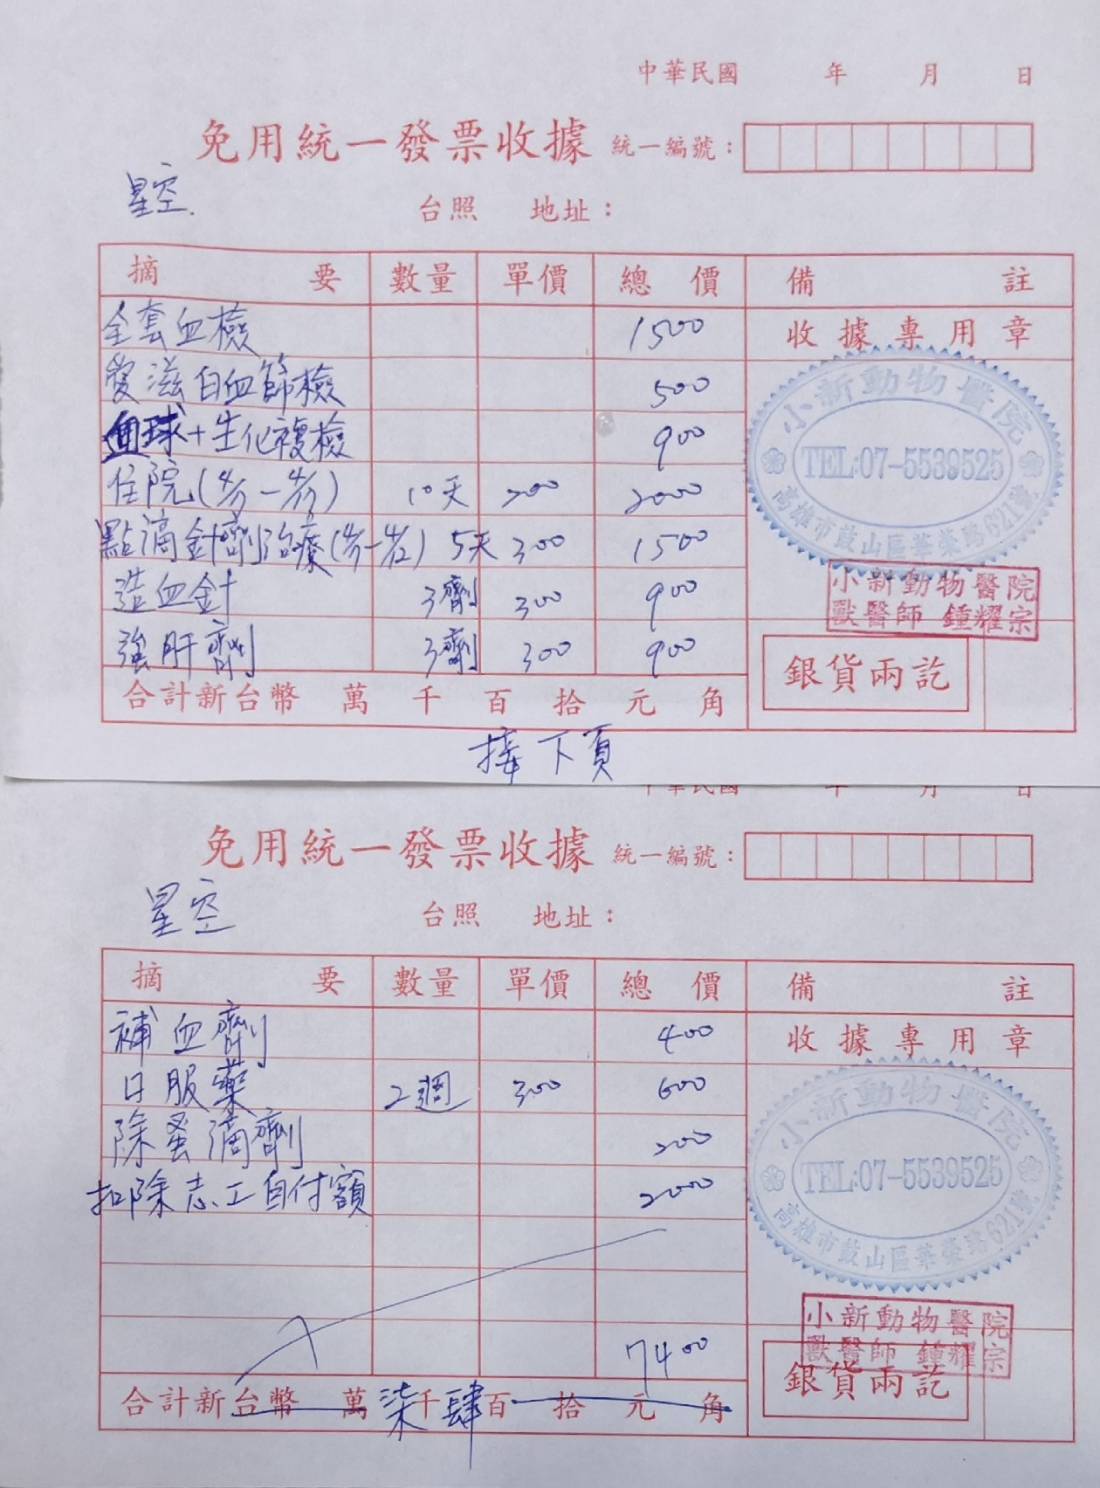 中華民國 年 月 日
免用統一發票收據 統一編號：
星空.
台照 地址：
摘要 數量 單價 總價 備註
全套血檢 1500 收據專用章
愛滋白血篩檢 500
血球+生化複檢 900
住院( ) 10天 200 2000
點滴針劑治療( ) 5天 300 1500
造血針 3劑 300 900
強肝劑 3劑 300 900
小新動物醫院
TEL:07-5539525
高雄市鼓山區華榮路621號
小新動物醫院
獸醫師 鍾耀宗
銀貨兩訖
合計新台幣 萬 千 百 拾 元 角
接下頁
中華民國 年 月 日
免用統一發票收據 統一編號：
星空
台照 地址：
摘要 數量 單價 總價 備註
補血劑 400 收據專用章
口服藥 2週 300 600
除蚤滴劑 200
扣除志工自付額 2000
7400
小新動物醫院
TEL:07-5539525
高雄市鼓山區華榮路621號
小新動物醫院
獸醫師 鍾耀宗
銀貨兩訖
合計新台幣 萬柒千肆百 拾 元 角